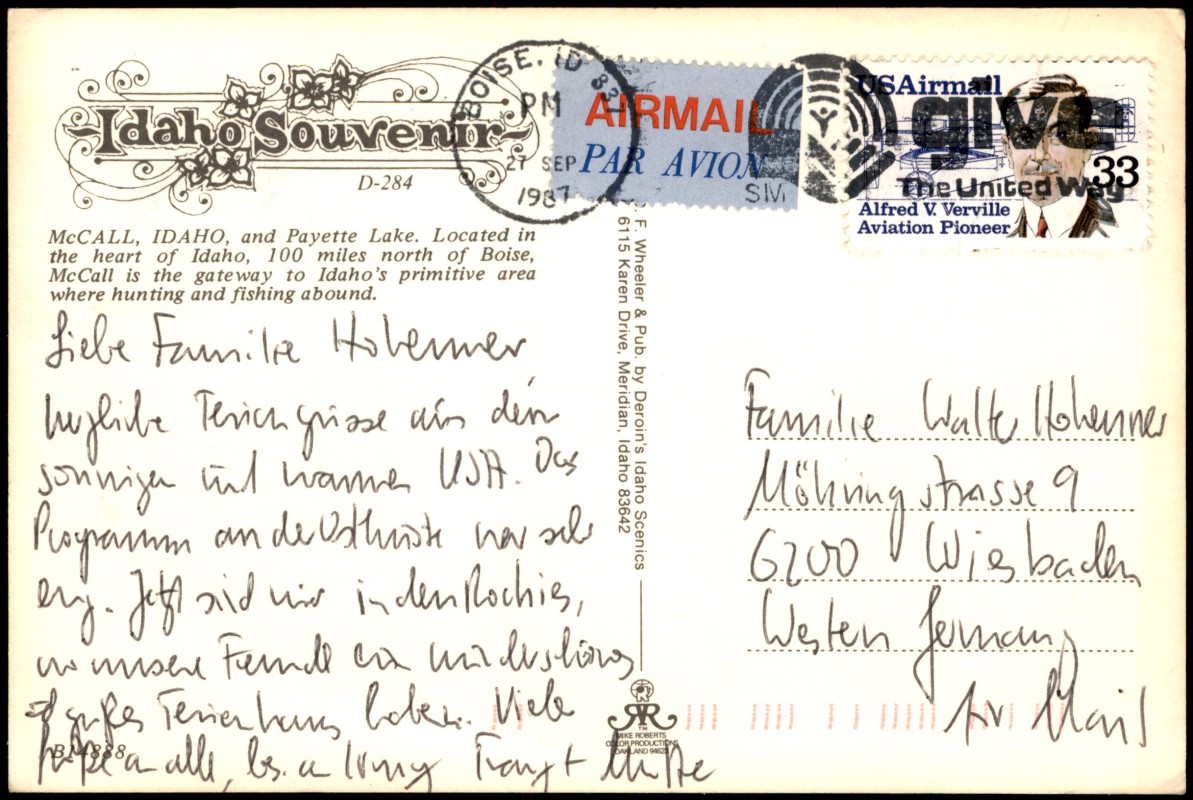 Idaho Souvenir
D-284
McCALL, IDAHO, and Payette Lake. Located in
the heart of Idaho, 100 miles north of Boise,
McCall is the gateway to Idaho's primitive area
where hunting and fishing abound.
BOISE, ID 
PM
27 SEP
1987
AIRMAIL
PAR AVION
SM
USAirmail
give
33
The United Way
Alfred V. Verville
Aviation Pioneer
Liebe Familie Hohenner
herzliche Feriengrüsse aus dem
sonnigen und warmen USA. Das
Programm an der Ostküste war sehr
eng. Jetzt sind wir in den Rockies,
wo unsere Freunde ein wunderschönes
großes Ferienhaus haben. Viele
Grüße an alle, bes. an
F. Wheeler & Pub. by Deroin's Idaho Scenics
6115 Karen Drive, Meridian, Idaho 83642
Familie Walter Hohenner
Möhringstrasse 9
6200 Wiesbaden
Western Germany
Air Mail
TM
MIKE ROBERTS
COLOR PRODUCTIONS
OAKLAND 94623
B14888